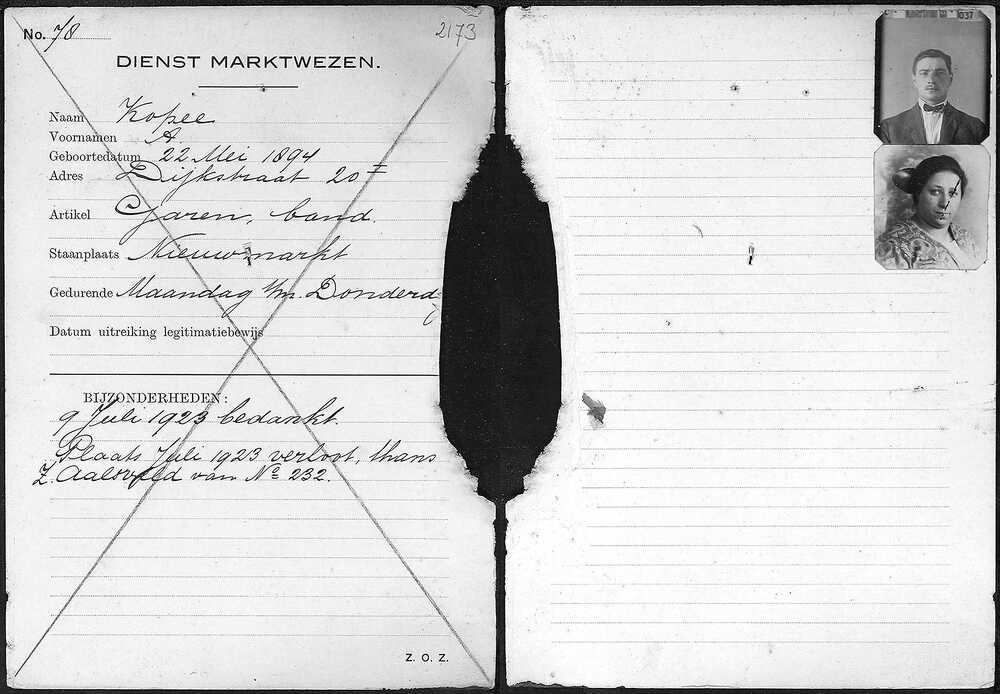 No. 78
2173
DIENST MARKTWEZEN.
Naam Kopee
Voornamen A
Geboortedatum 22 Mei 1894
Adres Dijkstraat 20 I
Artikel Garen, band.
Staanplaats Nieuwmarkt
Gedurende Maandag t/m. Donderd
Datum uitreiking legitimatiebewijs
BIJZONDERHEDEN:
9 Juli 1923 bedankt.
Plaats Juli 1923 verloot, thans
Z. Aalsveld van No 232.
Z. O. Z.
037